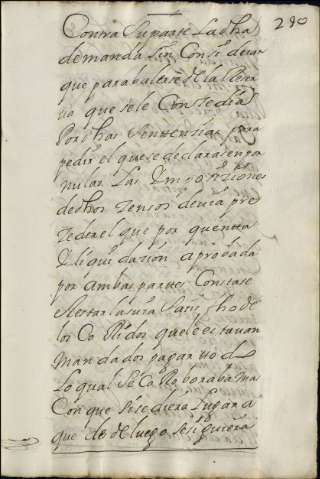 290
Contra su parte la dha
demanda sin Considerar
que para baler se de la Reser
va que se le Consedia
Por dhas sentensias para
pedir el que se declarasen por
nulas las Ymposiziones
de dhos sensos devia pre
zeder el que por quenta
Y liquidazion aprobada
por ambas partes Constase
estar la suia satisfho de
los Co Ridos que le estavan
mandados pagar
Lo qual se Co Roboraba mas
Con que si se diera lugar a
que desde luego se siguiera